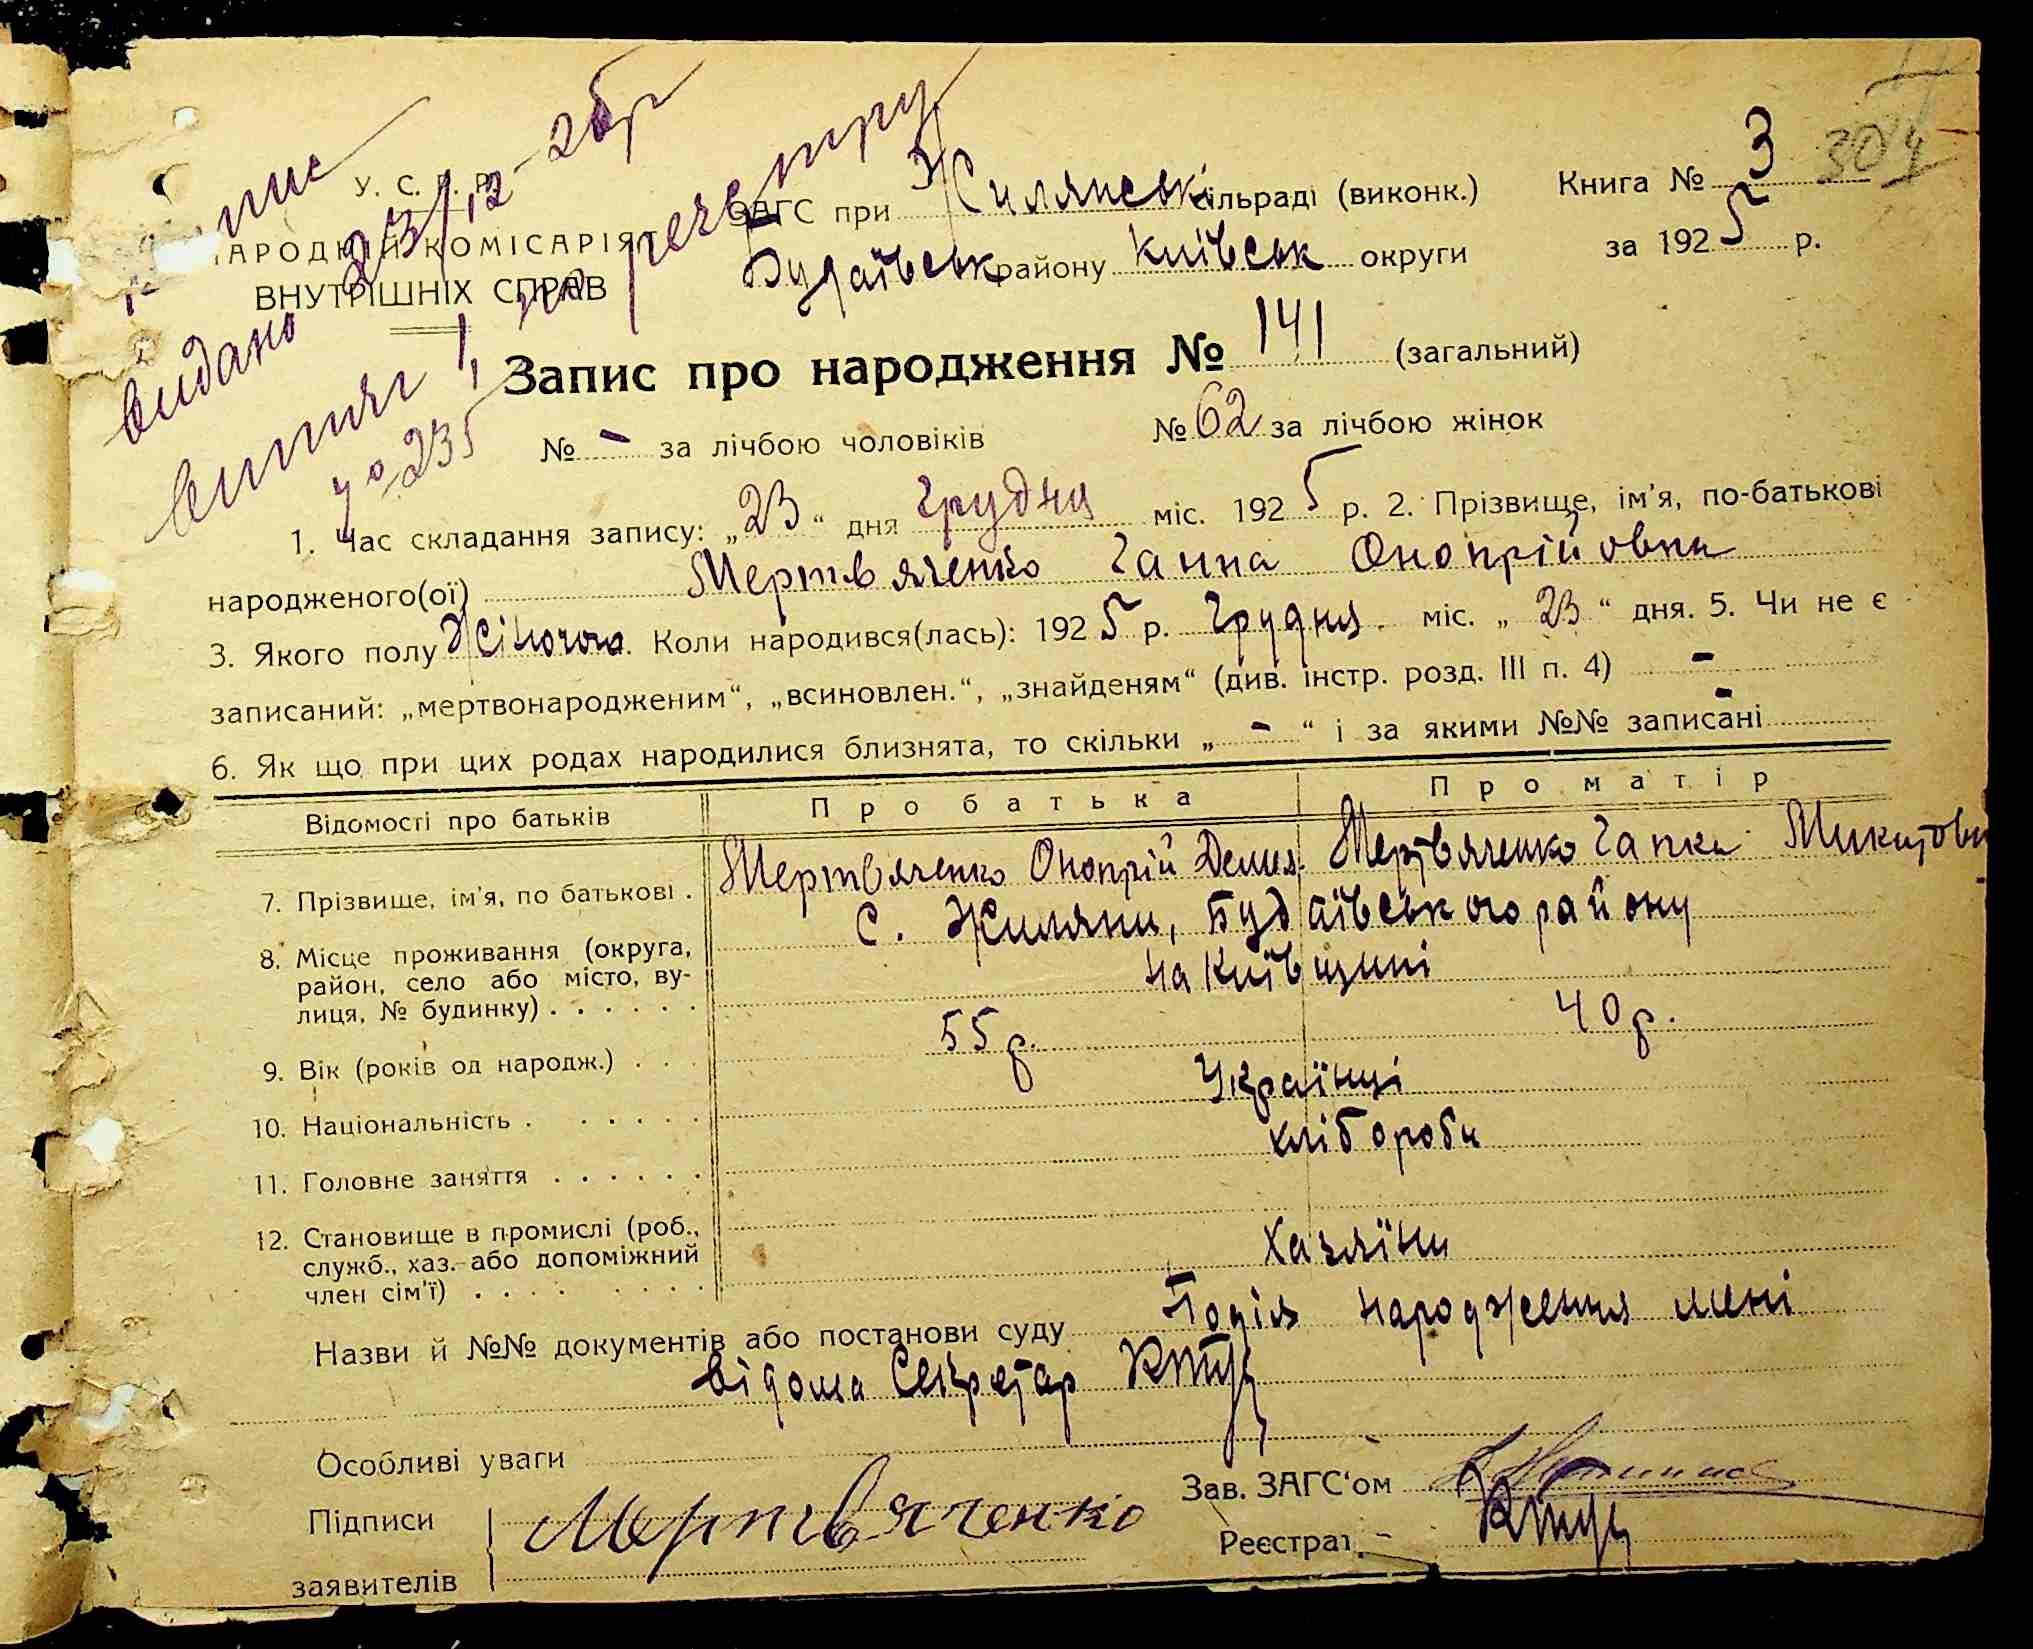 У. С. Р. Р.
НАРОДНІЙ КОМІСАРІЯТ
ВНУТРІШНІХ СПРАВ
видано 23/12-25р
витяг по реєстру
235
ЗАГС при Жилянськ сільраді (виконк.)
Будаївськ району Київськ округи
Книга № 3
304
за 1925 р.
Запис про народження № 141 (загальний)
№ - за лічбою чоловіків № 62 за лічбою жінок
1. Час складання запису: „23“ дня Грудня міс. 1925 р. 2. Прізвище, ім'я, по-батькові
народженого(ої) Мертвяченко Ганна Онопрійовна
3. Якого полу Жіночого. Коли народився(лась): 1925 р. Грудня міс. „23“ дня. 5. Чи не є
записаний: „мертвонародженим“, „всиновлен.“, „знайденям“ (див. інстр. розд. III п. 4) -
6. Як що при цих родах народилися близнята, то скільки „-“ і за якими №№ записані -
Відомості про батьків Про батька Про матір
7. Прізвище, ім'я, по батькові . Мертвяченко Онопрій Демия. Мертвяченко Гапка Микитовн
8. Місце проживання (округа, с. Жиляни, Будаївського району
район, село або місто, ву-
лиця, № будинку) . . . . . . на Київщині
9. Вік (років од народж.) . . . 55 р. 40 р.
10. Національність . . . . . . Українці
11. Головне заняття . . . . . . хлібороби
12. Становище в промислі (роб.,
служб., хаз. або допоміжний Хазяїни
член сім'ї) . . . . . . . .
Назви й №№ документів або постанови суду Подія народження мені
відома Секретар
Особливі уваги
Зав. ЗАГС'ом
Підписи
Мертвяченко
Реєстрат.
заявителів